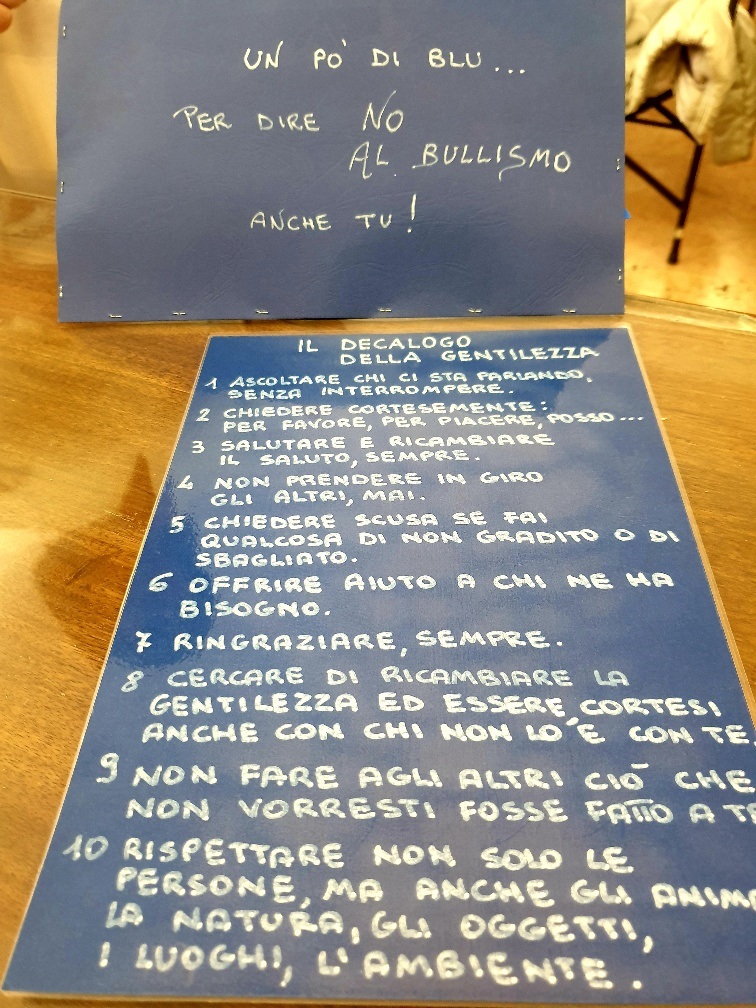 UN PO' DI BLU...
PER DIRE NO
AL BULLISMO
ANCHE TU!
IL DECALOGO
DELLA GENTILEZZA
1 ASCOLTARE CHI CI STA PARLANDO,
SENZA INTERROMPERE.
2 CHIEDERE CORTESEMENTE:
PER FAVORE, PER PIACERE, POSSO...
3 SALUTARE E RICAMBIARE
IL SALUTO, SEMPRE.
4 NON PRENDERE IN GIRO
GLI ALTRI, MAI.
5 CHIEDERE SCUSA SE FAI
QUALCOSA DI NON GRADITO O DI
SBAGLIATO.
6 OFFRIRE AIUTO A CHI NE HA
BISOGNO.
7 RINGRAZIARE, SEMPRE.
8 CERCARE DI RICAMBIARE LA
GENTILEZZA ED ESSERE CORTESI
ANCHE CON CHI NON LO È CON TE.
9 NON FARE AGLI ALTRI CIÒ CHE
NON VORRESTI FOSSE FATTO A TE
10 RISPETTARE NON SOLO LE
PERSONE, MA ANCHE GLI ANIMA
LA NATURA, GLI OGGETTI,
I LUOGHI, L'AMBIENTE.